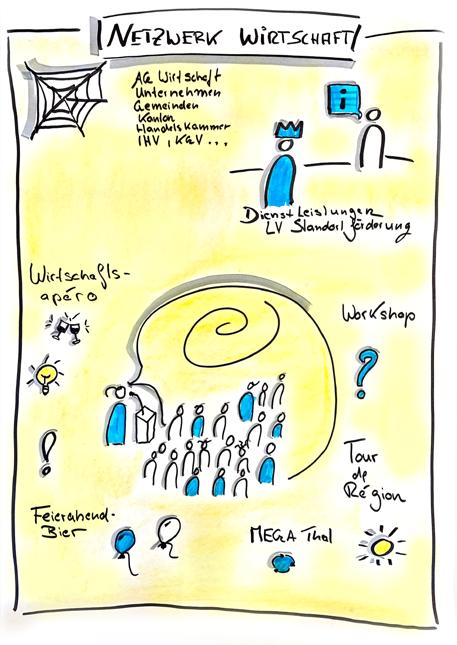 NETZWERK WIRTSCHAFT
AG Wirtschaft
Unternehmen
Gemeinden
Kanton
Handelskammer
IHV, KGV ...
i
Dienstleistungen
LV Standortförderung
Wirtschafts-
apéro
Workshop
?
!
Tour
de
Région
Feierabend-
Bier
MEGA Thal